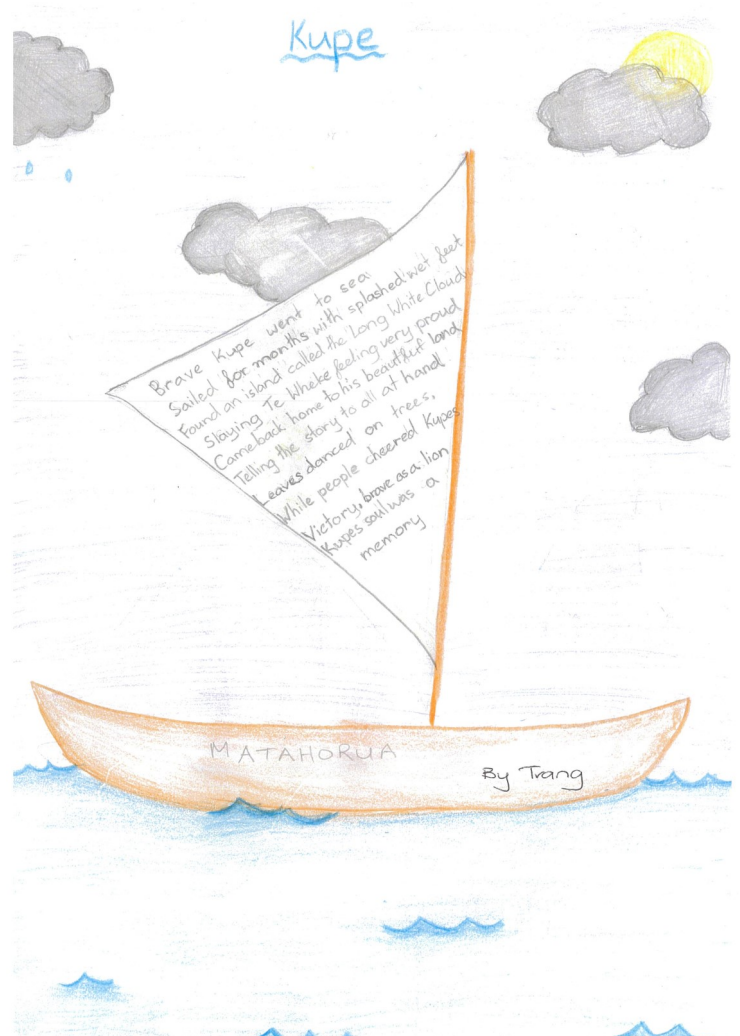 Kupe
Brave Kupe went to sea
Sailed for months with splashed wet feet
Found an island called the Long White Cloud
Slaying Te Wheke feeling very proud
Came back home to his beautiful land
Telling the story to all at hand
Leaves danced on trees,
While people cheered Kupes
Victory, brave as a lion
Kupes soul was a
memory
MATAHORUA
By Trang